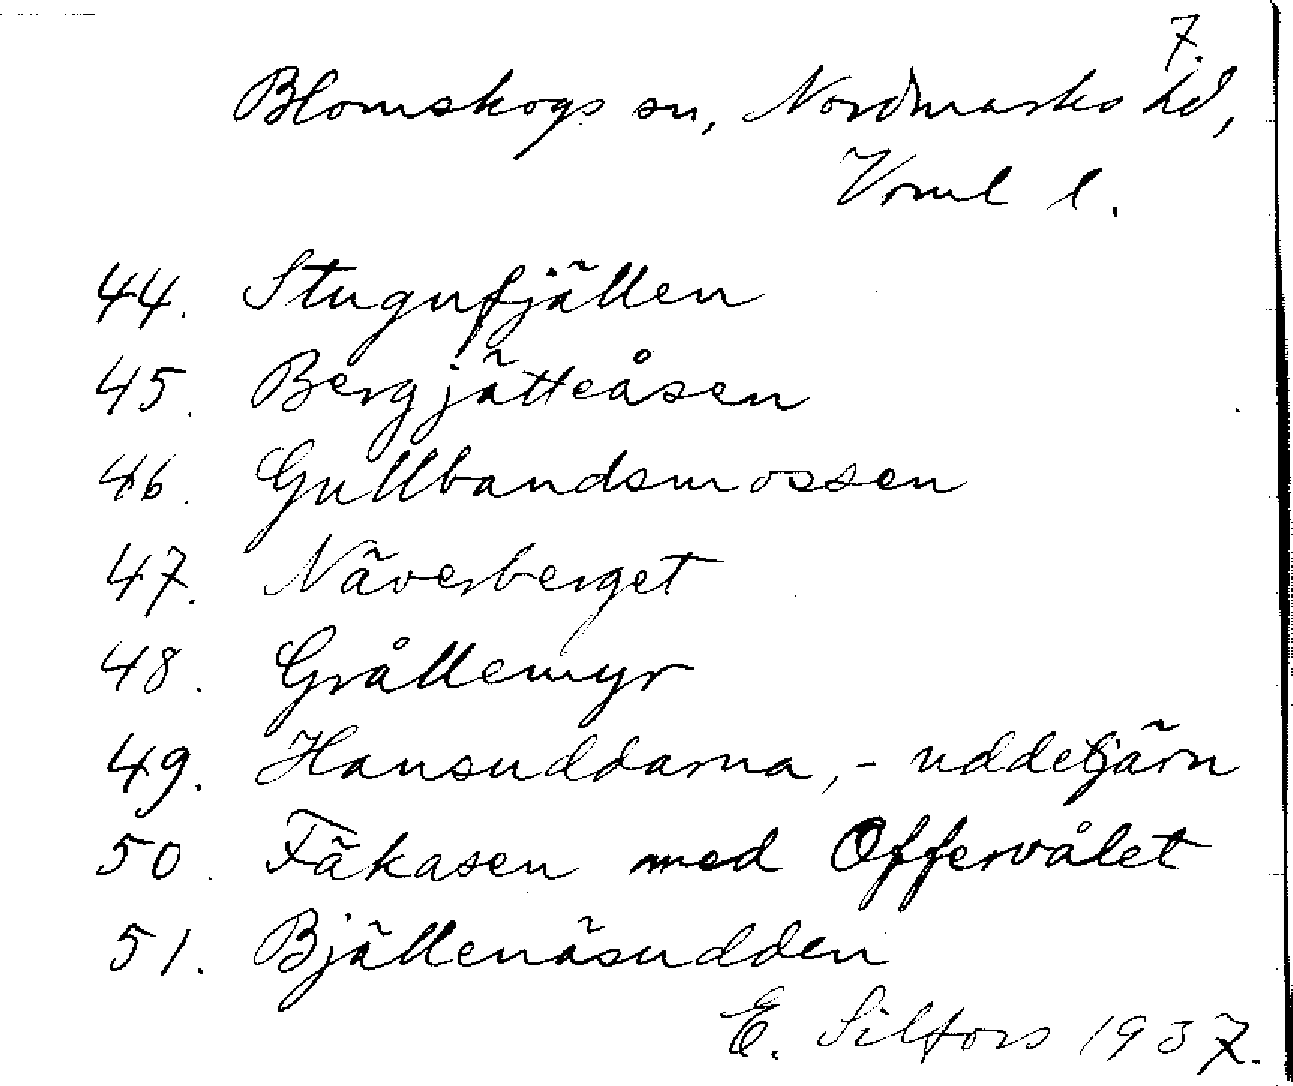 7.
Blomskogs sn, Nordmarks hd,
Vrml l.
44. Stugufjällen
45. Bergjätteåsen
46. Gullbandsmossen
47. Näverberget
48. Grållemyr
49. Hansuddarna, - uddetjärn
50. Fäkasen med Offervålet
51. Bjällenäsudden
E. Silfors 1937.